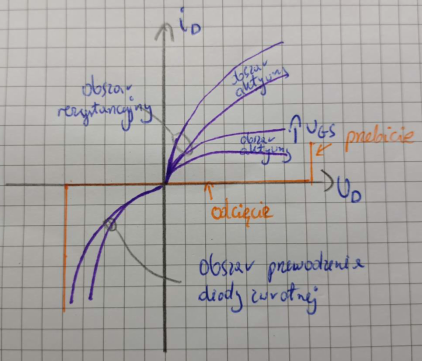 i_D
obszar
rezystancyjny
obszar
aktywny
obszar
aktywny
↑ U_GS
przebicie
U_D
odcięcie
Obszar przewodzenia
diody zwrotnej